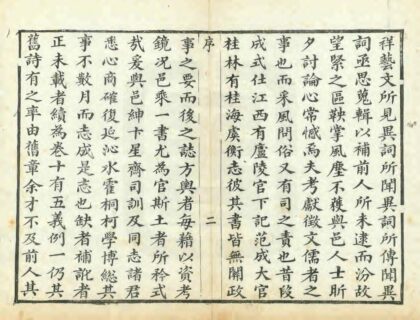 祥藝文所見異詞所聞異詞所傳聞異
詞丞思蒐輯以補前人所未逮而汾故
望緊之區鞅掌風塵不獲與邑人士昕
夕討論心常憾焉夫考獻徵文儒者之
事也而采風問俗又有司之責也昔段
成式仕江西有廬陵官下記范成大官
桂林有桂海虞衡志彼其書皆無關政
序
二
事之要而後之誌方輿者每藉以資考
鏡况邑乘一書尤為官斯土者所矜式
哉爰與邑紳卡星齋司訓及同志諸君
悉心商確復延沁水霍桐柯學博總其
事不數月而志成是志也缺者補訛者
正未載者續為卷十有五義例一仍其
舊詩有之率由舊章余才不及前人其